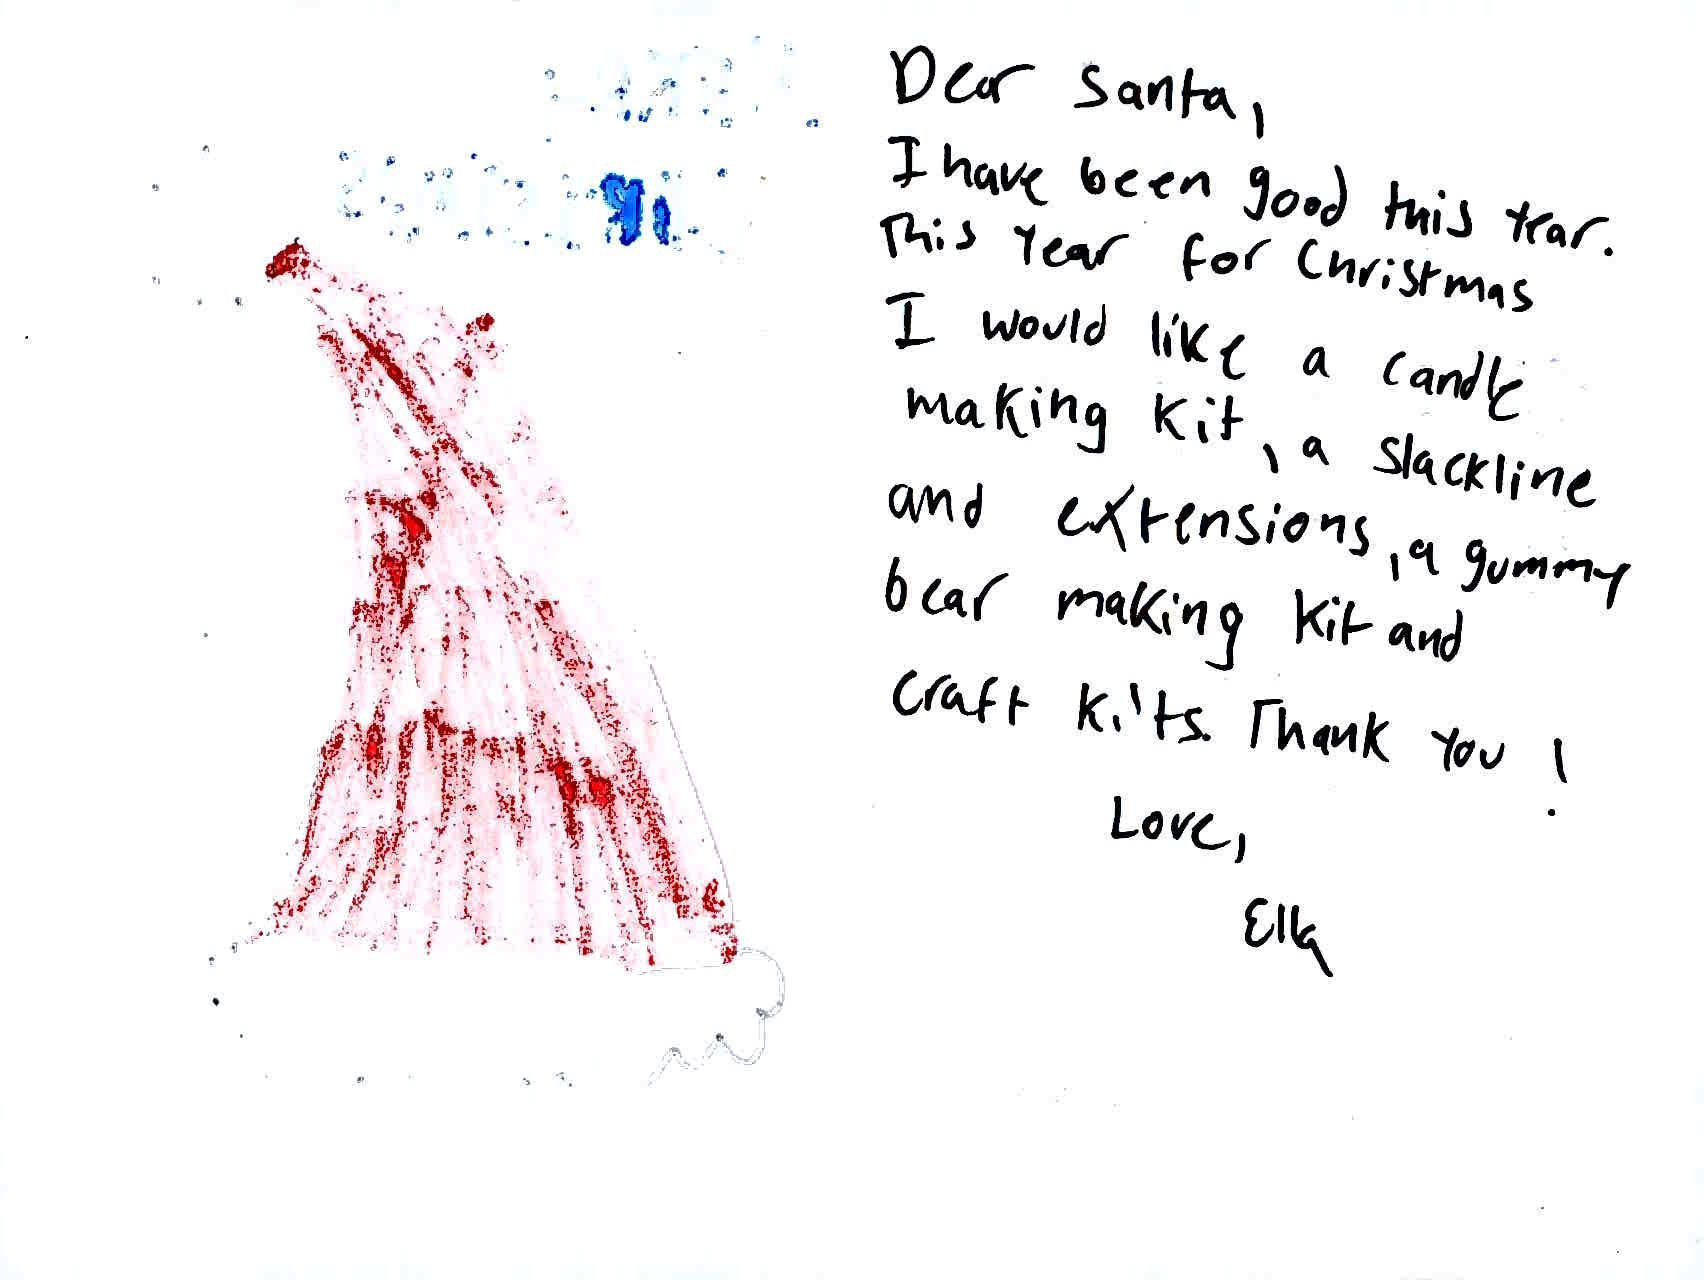 Dear Santa,
I have been good this year.
This Year for Christmas
I would like a candle
making Kit, a slackline
and extensions, a gummy
bear making Kit and
craft kits. Thank you!
Love,
Ella